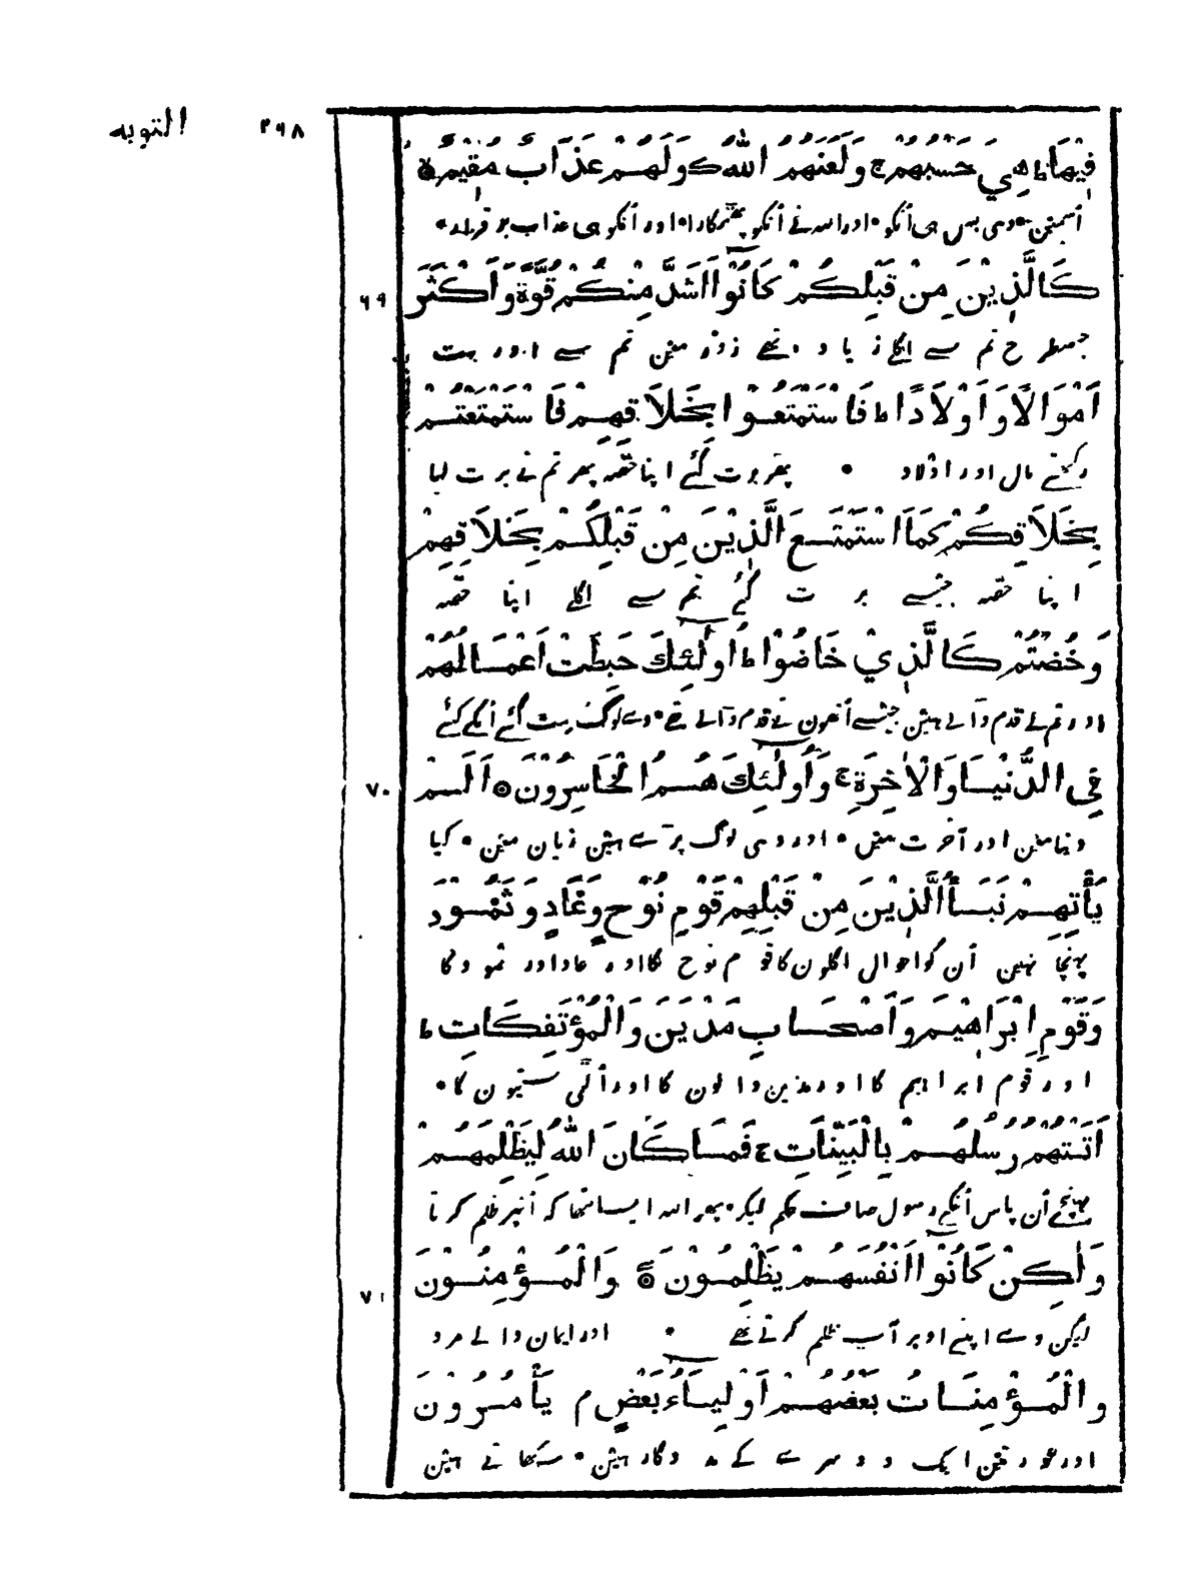 التوبه ۲۶۸
فِيْهَا ط هِيَ حَسْبُهُمْ ج وَلَعَنَهُمُ اللّٰهُ ك وَلَهُمْ عَذَابٌ مُّقِيْمٌ ۝
اُسمین • وہی بس ہی اُنکو • اور اللہ نے اُنکو پھٹکارا • اور اُنکو ہی عذاب برقرار •
كَالَّذِيْنَ مِنْ قَبْلِكُمْ كَانُوْا اَشَدَّ مِنْكُمْ قُوَّةً وَ اَكْثَرَ ۶۹
جسطرح تم سے اگلے زیادہ تھے زور مین تم سے اور بہت
اَمْوَالًا وَ اَوْلَادًا ط فَاسْتَمْتَعُوْا بِخَلَاقِهِمْ فَاسْتَمْتَعْتُمْ
رکھتے مال اور اولاد • پھر برت گئے اپنا حصّہ پھر تم نے برت لیا
بِخَلَاقِكُمْ كَمَا اسْتَمْتَعَ الَّذِيْنَ مِنْ قَبْلِكُمْ بِخَلَاقِهِمْ
اپنا حصّہ جیسے برت گئے تم سے اگلے اپنا حصّہ
وَ خُضْتُمْ كَالَّذِيْ خَاضُوْا ط اُولٰئِكَ حَبِطَتْ اَعْمَالُهُمْ
اور تم نے قدم ڈالے ہین جیسے اُنھون نے قدم ڈالے تھے • وے لوگ مٹ گئے اُنکے کئے
فِي الدُّنْيَا وَ الْاٰخِرَةِ ج وَ اُولٰئِكَ هُمُ الْخَاسِرُوْنَ ۝ اَلَمْ ۷۰
دنیا مین اور آخرت مین • اور وہی لوگ پڑے ہین زیان مین • کیا
يَأْتِهِمْ نَبَأُ الَّذِيْنَ مِنْ قَبْلِهِمْ قَوْمِ نُوْحٍ وَّ عَادٍ وَ ثَمُوْدَ
پہنچا نہین اُن کو احوال اگلون کا قوم نوح کا اور عاد اور ثمود کا
وَ قَوْمِ اِبْرَاهِيْمَ وَ اَصْحَابِ مَدْيَنَ وَ الْمُؤْتَفِكَاتِ ط
اور قوم ابراہیم کا اور مدین والون کا اور اُلٹی بستیون کا •
اَتَتْهُمْ رُسُلُهُمْ بِالْبَيِّنَاتِ ج فَمَا كَانَ اللّٰهُ لِيَظْلِمَهُمْ
پہنچے اُن پاس اُنکے رسول صاف حکم لیکر • پھر اللہ ایسا نتھا کہ اُنپر ظلم کرتا
وَ لٰكِنْ كَانُوْا اَنْفُسَهُمْ يَظْلِمُوْنَ ۝ وَ الْمُؤْمِنُوْنَ ۷۱
لیکن وے اپنے اوپر آپ ظلم کرتے تھے • اور ایمان والے مرد
وَ الْمُؤْمِنَاتُ بَعْضُهُمْ اَوْلِيَاءُ بَعْضٍ م يَأْمُرُوْنَ
اور عورتین ایک دوسرے کے مددگار ہین • سکھاتے ہین